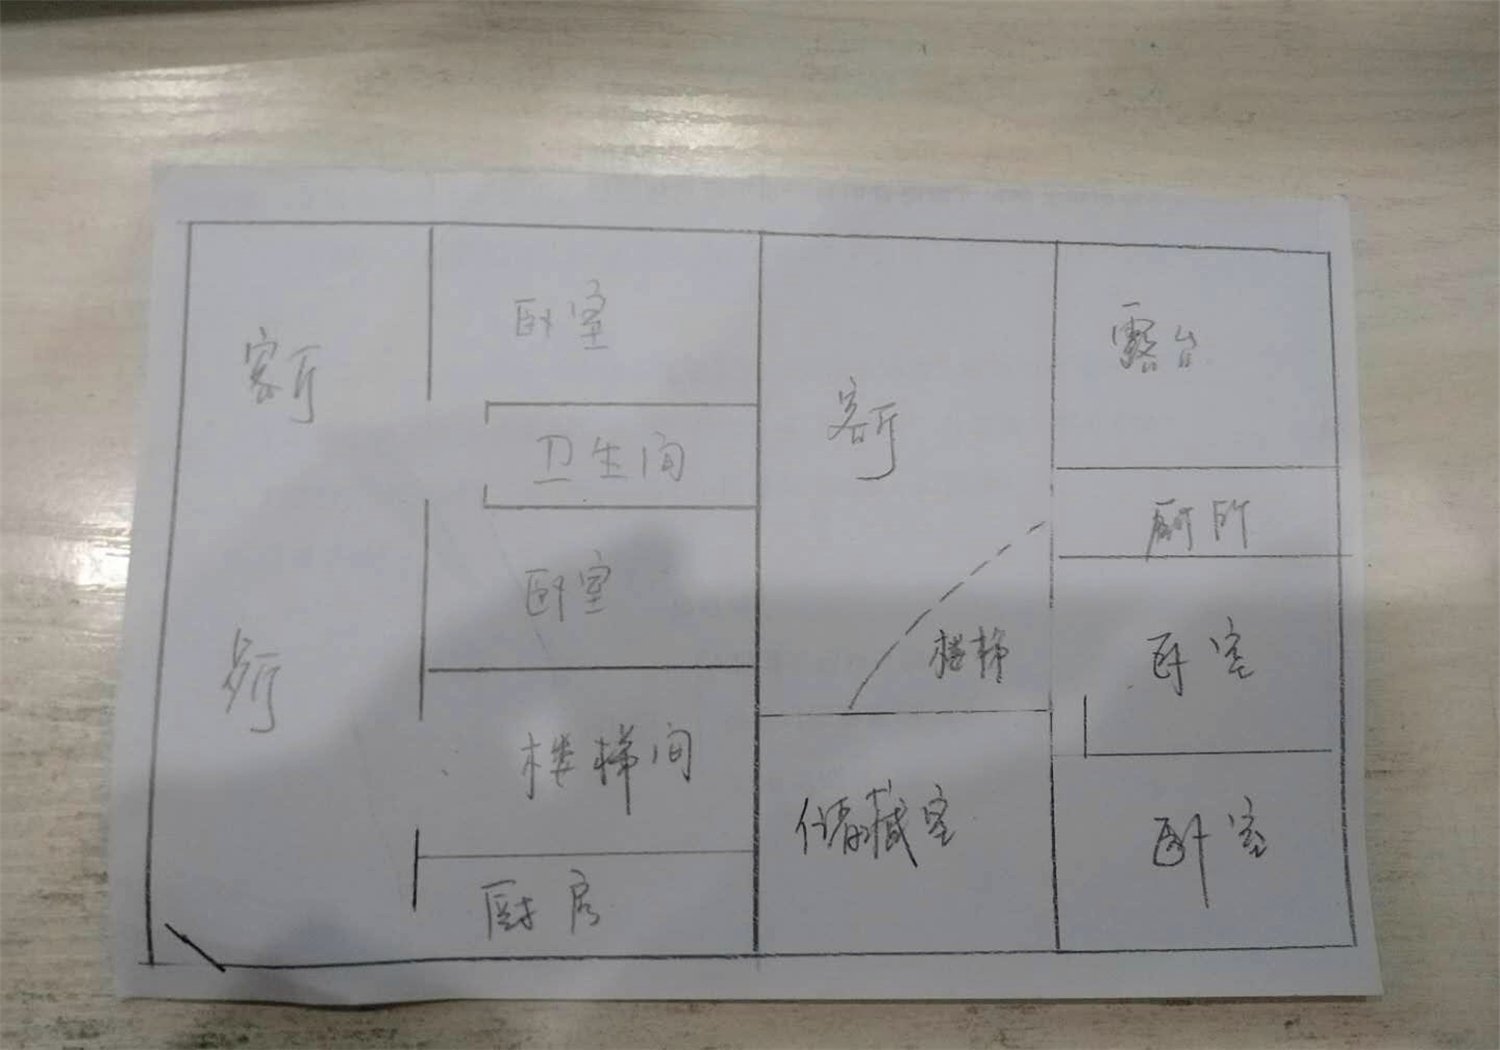 客厅
卧室
卫生间
卧室
楼梯间
厨房
客厅
楼梯
储藏室
露台
厕所
卧室
卧室